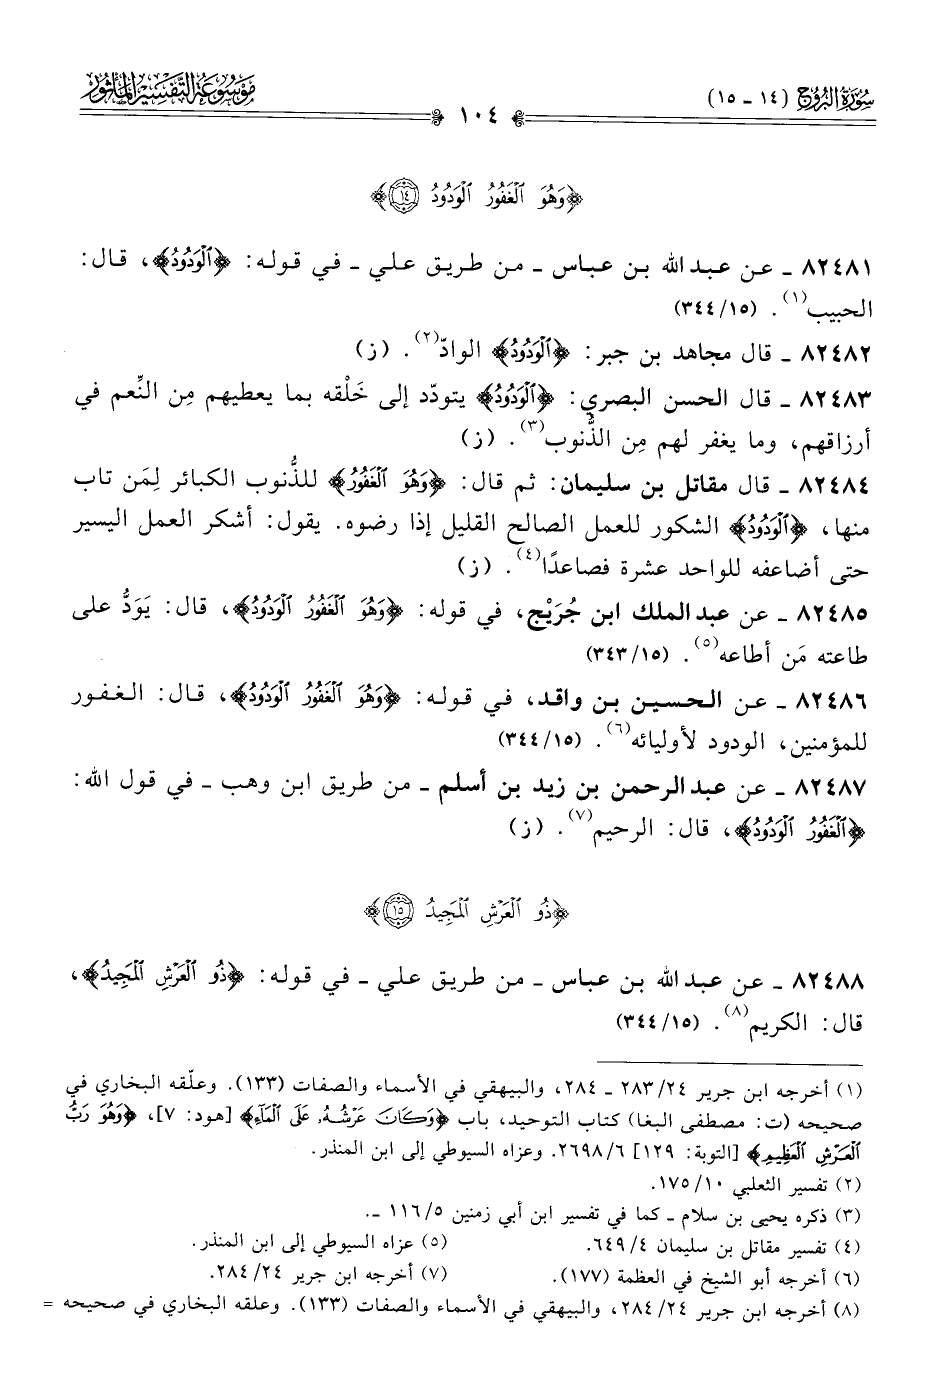 سُورَةُ البُرُوج (١٤ - ١٥)
١٠٤
مَوْسُوعَةُ التَّفْسِيرِ المَأْثُورِ
﴿وَهُوَ ٱلْغَفُورُ ٱلْوَدُودُ ١٤﴾
٨٢٤٨١ - عن عبد الله بن عباس - من طريق علي - في قوله: ﴿ٱلْوَدُودُ﴾، قال:
الحبيب(١). (٣٤٤/١٥)
٨٢٤٨٢ - قال مجاهد بن جبر: ﴿ٱلْوَدُودُ﴾ الوادّ(٢). (ز)
٨٢٤٨٣ - قال الحسن البصري: ﴿ٱلْوَدُودُ﴾ يتودّد إلى خَلْقه بما يعطيهم مِن النِّعم في
أرزاقهم، وما يغفر لهم مِن الذُّنوب(٣). (ز)
٨٢٤٨٤ - قال مقاتل بن سليمان: ثم قال: ﴿وَهُوَ ٱلْغَفُورُ﴾ للذُّنوب الكبائر لِمَن تاب
منها، ﴿ٱلْوَدُودُ﴾ الشكور للعمل الصالح القليل إذا رضوه. يقول: أشكر العمل اليسير
حتى أضاعفه للواحد عشرة فصاعدًا(٤). (ز)
٨٢٤٨٥ - عن عبد الملك ابن جُرَيْج، في قوله: ﴿وَهُوَ ٱلْغَفُورُ ٱلْوَدُودُ﴾، قال: يَوَدُّ على
طاعته مَن أطاعه(٥). (٣٤٣/١٥)
٨٢٤٨٦ - عن الحسين بن واقد، في قوله: ﴿وَهُوَ ٱلْغَفُورُ ٱلْوَدُودُ﴾، قال: الغفور
للمؤمنين، الودود لأوليائه(٦). (٣٤٤/١٥)
٨٢٤٨٧ - عن عبد الرحمن بن زيد بن أسلم - من طريق ابن وهب - في قول الله:
﴿ٱلْغَفُورُ ٱلْوَدُودُ﴾، قال: الرحيم(٧). (ز)
﴿ذُو ٱلْعَرْشِ ٱلْمَجِيدُ ١٥﴾
٨٢٤٨٨ - عن عبد الله بن عباس - من طريق علي - في قوله: ﴿ذُو ٱلْعَرْشِ ٱلْمَجِيدُ﴾،
قال: الكريم(٨). (٣٤٤/١٥)
(١) أخرجه ابن جرير ٢٤/ ٢٨٣ - ٢٨٤، والبيهقي في الأسماء والصفات (١٣٣). وعلّقه البخاري في
صحيحه (ت: مصطفى البغا) كتاب التوحيد، باب ﴿وَكَانَ عَرْشُهُۥ عَلَى ٱلْمَآءِ﴾ [هود: ٧]، ﴿وَهُوَ رَبُّ
ٱلْعَرْشِ ٱلْعَظِيمِ﴾ [التوبة: ١٢٩] ٦/ ٢٦٩٨. وعزاه السيوطي إلى ابن المنذر.
(٢) تفسير الثعلبي ١٠/ ١٧٥.
(٣) ذكره يحيى بن سلام - كما في تفسير ابن أبي زمنين ٥/ ١١٦ -.
(٤) تفسير مقاتل بن سليمان ٤/ ٦٤٩. (٥) عزاه السيوطي إلى ابن المنذر.
(٦) أخرجه أبو الشيخ في العظمة (١٧٧). (٧) أخرجه ابن جرير ٢٤/ ٢٨٤.
(٨) أخرجه ابن جرير ٢٤/ ٢٨٤، والبيهقي في الأسماء والصفات (١٣٣). وعلقه البخاري في صحيحه =